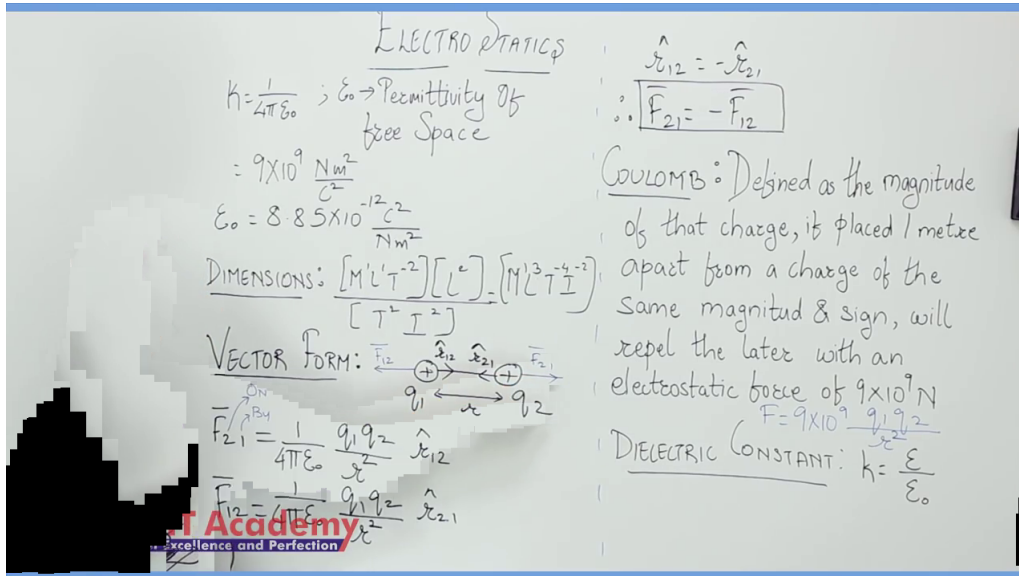 ELECTROSTATICS
K = 1/4πε₀ ; ε₀ → Permittivity Of
free Space
= 9X10⁹ Nm²/C²
ε₀ = 8.85X10⁻¹² C²/Nm²
DIMENSIONS: [M¹L¹T⁻²][L²]/[T² I²] = [M¹L³T⁻⁴I⁻²]
VECTOR FORM:
F̅₁₂ r̂₁₂ r̂₂₁ F̅₂₁
+ +
q₁ r q₂
ON
By
F̅₂₁ = 1/4πε₀ q₁q₂/r² r̂₁₂
F̅₁₂ = 1/4πε₀ q₁q₂/r² r̂₂₁
T Academy
Excellence and Perfection
r̂₁₂ = -r̂₂₁
∴ F̅₂₁ = -F̅₁₂
COULOMB: Defined as the magnitude
of that charge, if placed 1 metre
apart from a charge of the
same magnitud & sign, will
repel the later with an
electrostatic force of 9X10⁹N
F = 9X10⁹ q₁q₂/r²
DIELECTRIC CONSTANT: k = ε/ε₀